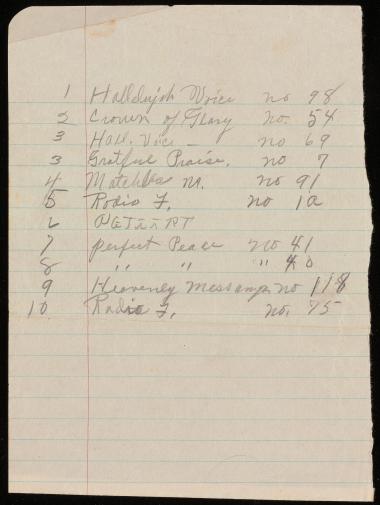 1 Hallelujah Voice no 98
2 Crown of Glory no. 54
3 Hall. Voice - no 69
3 Grateful Praise. no 7
4 Matchless M. no 91
5 Radio F. no 12
6
7 perfect Peace no 41
8 " " " 40
9 Heavenly Message no 118
10 Radio F. no. 75